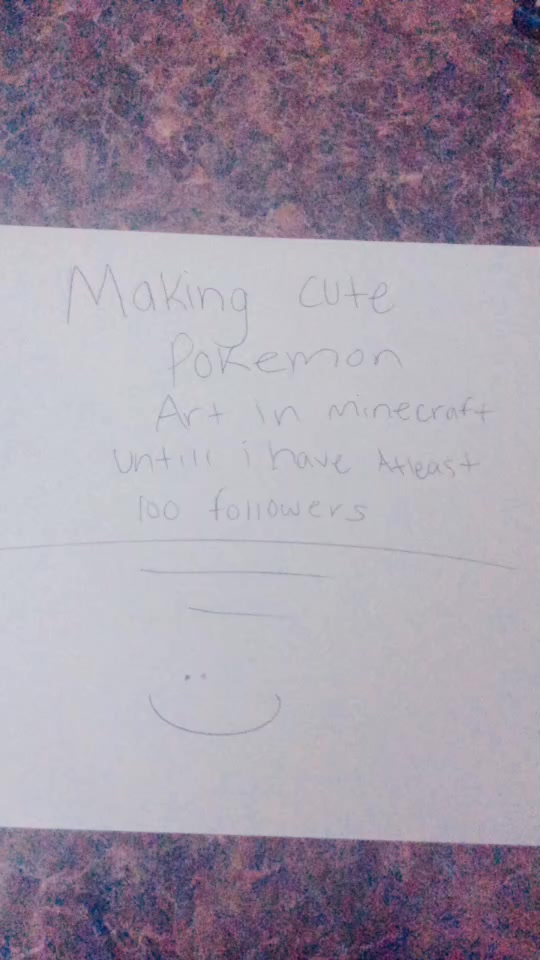 Making cute
Pokemon
Art in minecraft
untill i have Atleast
100 followers